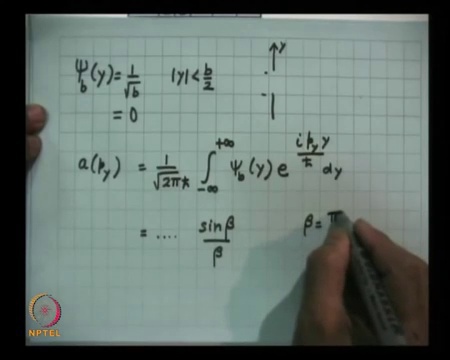 Ψ_b(y) = 1/√b    |y| < b/2    y
= 0
a(p_y) = 1/√(2πħ) ∫_{-∞}^{+∞} Ψ_b(y) e^{i p_y y/ħ} dy
= .... sinβ/β    β = π
NPTEL